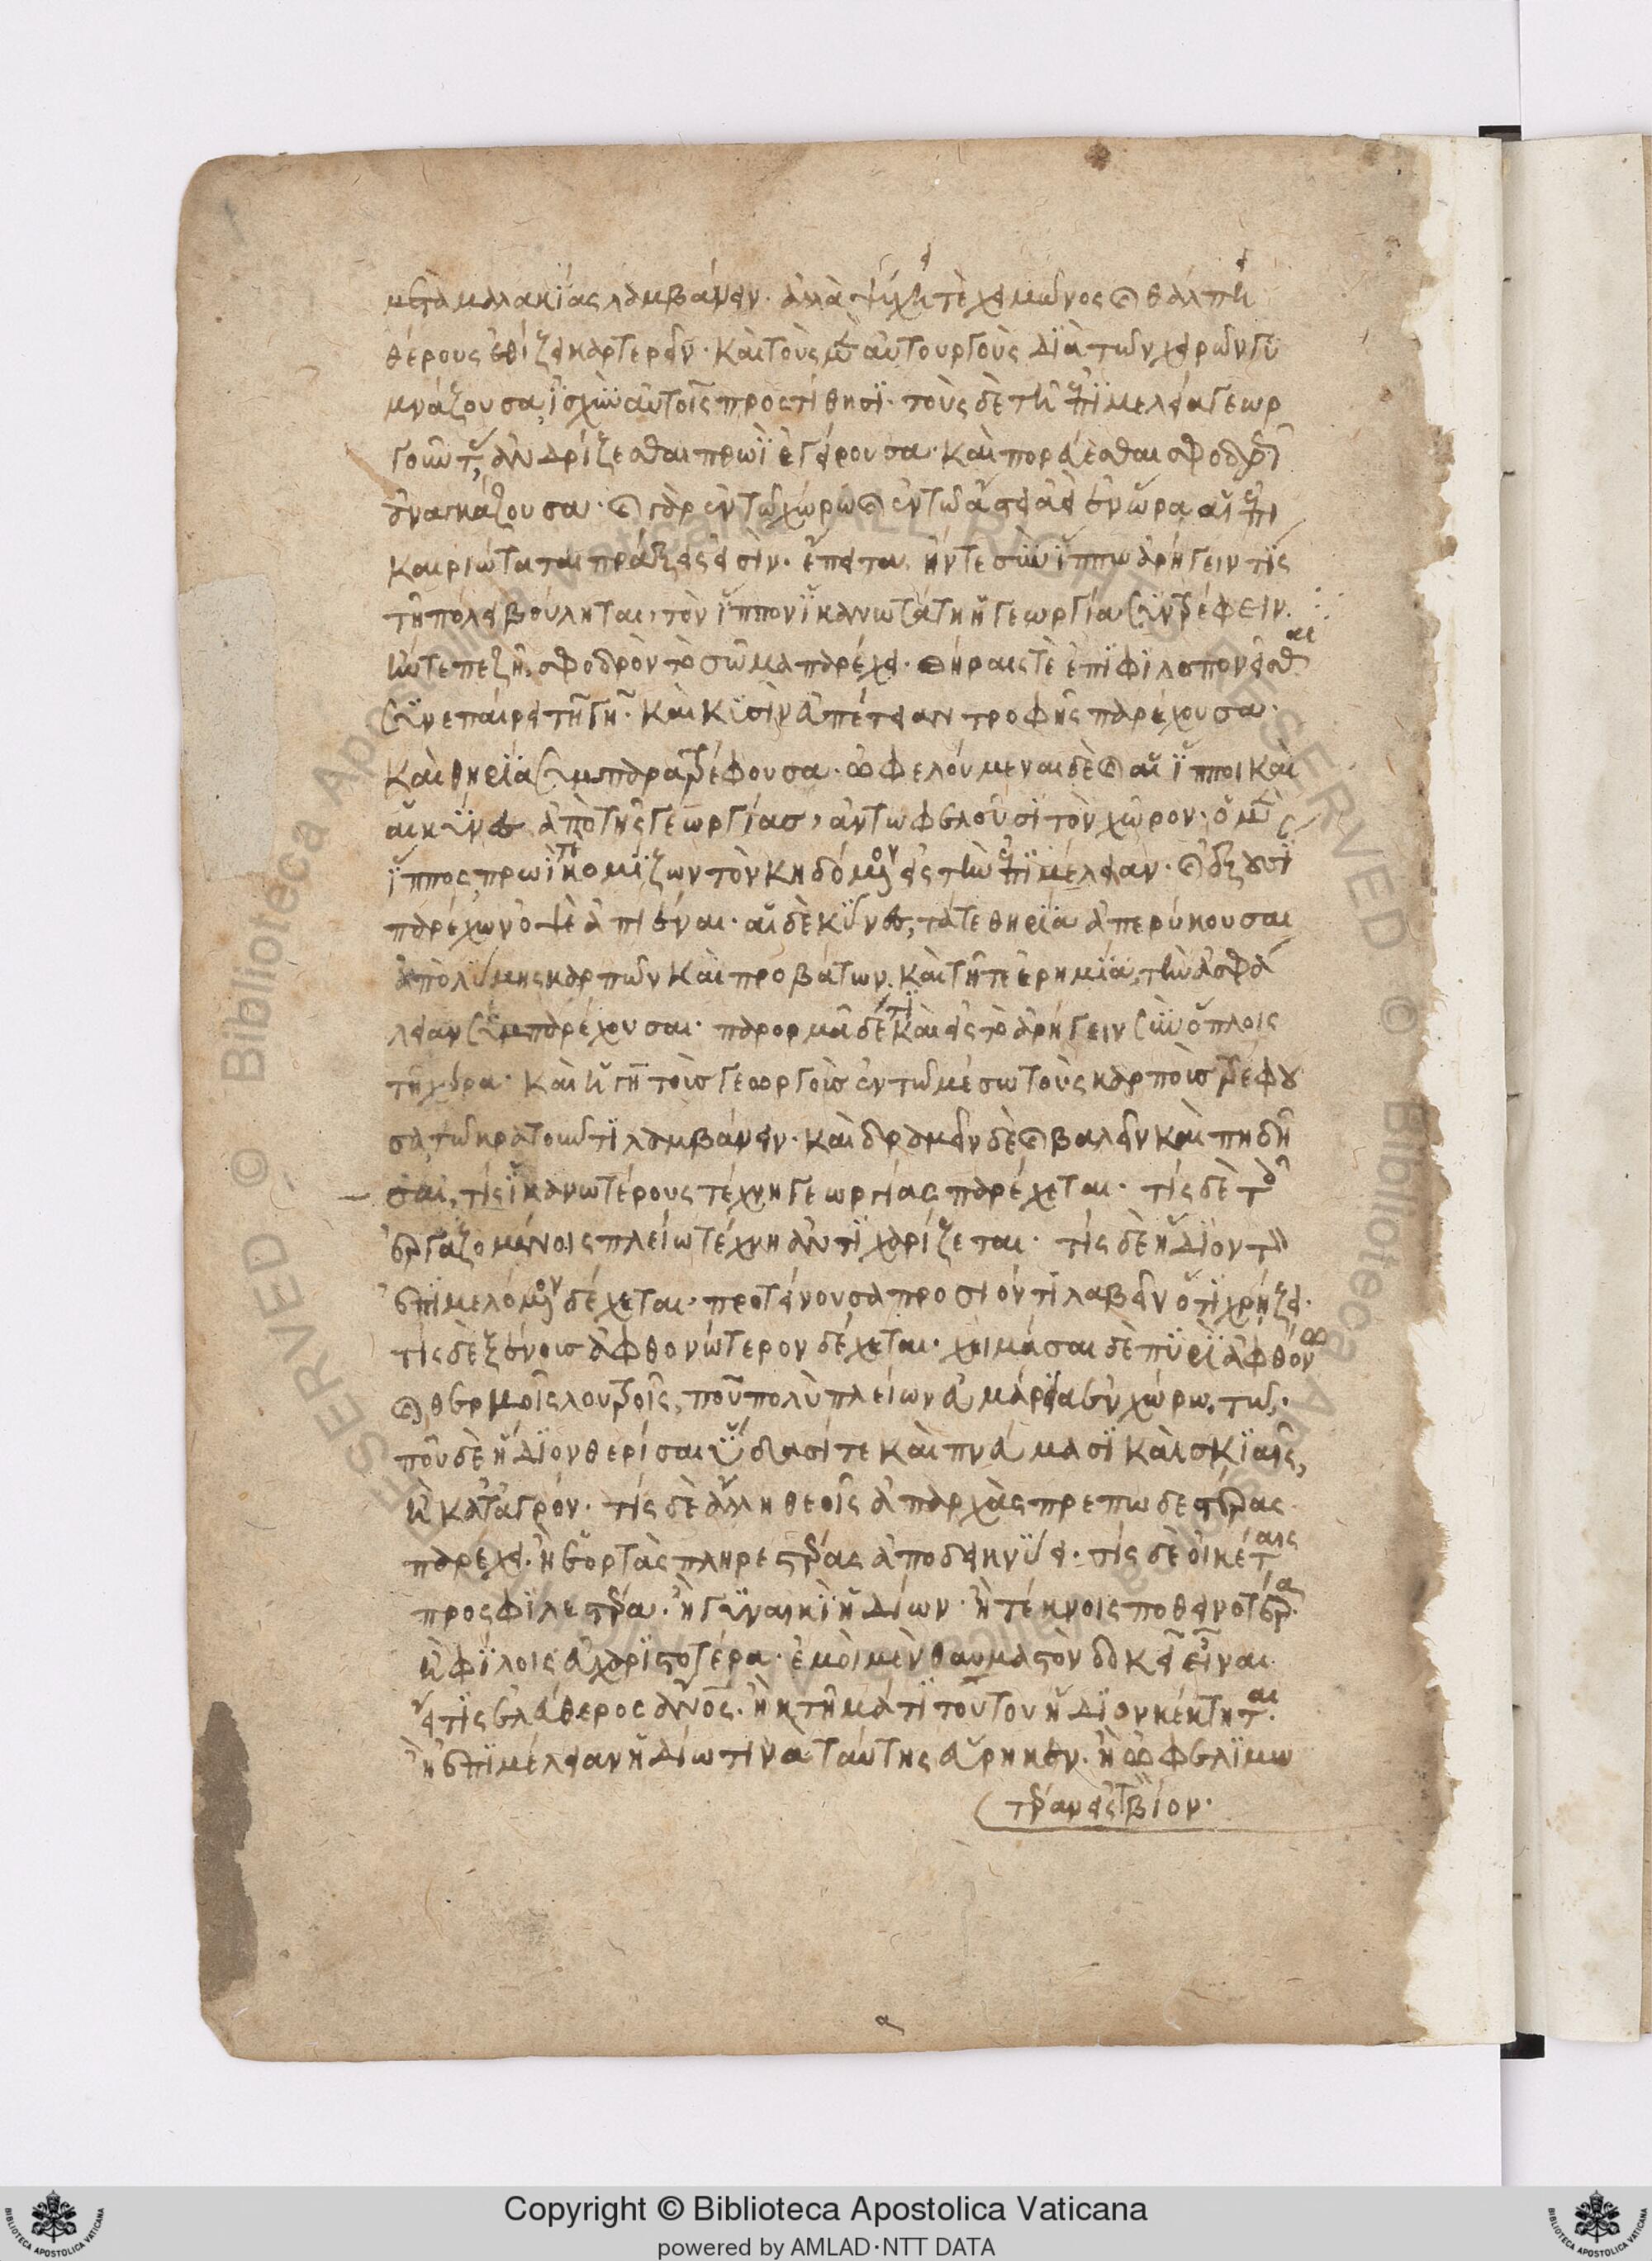 μετὰ μαλακίας λαμβάνειν. ἀλλὰ ψύχη τὲ χειμῶνος καὶ θάλπη
θέρους ἐθίζει καρτερεῖν. καὶ τοὺς μὲν αὐτουργοὺς διὰ τῶν χειρῶν γυ
μνάζουσα, ἰσχὺν αὐτοῖς προστίθησι. τοὺς δὲ τῆ ἐπιμελεία γεωρ
γοῦντας, ἀνδρίζεσθαι πρωῒ ἐγείρουσα. καὶ πορεύεσθαι σφοδρῶς
ἀναγκάζουσα. καὶ γὰρ ἐν τῶ χώρω καὶ ἐν τῶ ἄστει ἀεὶ ἐν ὥρα αἱ ἐπι
καιριώταται πράξεις εἰσίν. ἔπειτα, ἤν τε σὺν ἵππω ἀρήγειν τίς
τῆ πόλει βούληται, τὸν ἵππον ἱκανωτάτη ἡ γεωργία συντρέφειν.
ἤν τε πεζῆ, σφοδρὸν τὸ σῶμα παρέχει. θήραις τὲ ἐπιφιλοπονεῖσθαι
συνεπαίρει τῆ γῆ. καὶ κυσὶν εὐπέτειαν τροφῆς παρέχουσα.
καὶ θηρία συμπαρατρέφουσα. ὠφελούμεναι δὲ καὶ αἱ ἵπποι καὶ
αἱ κύνες ἀπὸ τῆς γεωργίας, ἀντωφελοῦσι τὸν χῶρον. ὁ μὲν
ἵππος πρωΐ τε κομίζων τὸν κηδόμενον εἰς τὴν ἐπιμέλειαν. καὶ ἐξουσί
παρέχων ὀψὲ ἀπιέναι. αἱ δὲ κύνες, τά τε θηρία ἀπερύκουσαι
ἀπὸ λύμης καρπῶν καὶ προβάτων. καὶ τῆ τε ἐρημία, τὴν ἀσφά
λειαν συμπαρέχουσαι. παρορμᾶ δέ τι καὶ εἰς τὸ ἀρήγειν σὺν ὅπλοις
τῆ χώρα. καὶ ἡ γῆ τοῖς γεωργοῖς ἐν τῶ μέσω τοὺς καρποὺς τρέφου
σα, τῶ κρατοῦντι λαμβάνειν. καὶ δραμεῖν δὲ καὶ βαλεῖν καὶ πηδῆ
σαι, τίς ἱκανωτέρους τέχνη γεωργίας παρέχεται. τίς δὲ τοῖς
ἐργαζομένοις πλείω τέχνη ἀντιχαρίζεται. τίς δὲ ἥδιον τὸν
ἐπιμελόμενον δέχεται. προτείνουσα προσιόντι λαβεῖν ὅ τι χρήζει.
τίς δὲ ξένοις ἀφθονώτερον δέχεται. χειμάσαι δὲ πυρὶ ἀφθόνω
καὶ θερμοῖς λουτροῖς, ποῦ πολὺ πλείων εὐμάρεια ἐν χώρω, τω.
ποῦ δὲ ἥδιον θερίσαι ὕδασί τε καὶ πνεύμασι καὶ σκιαῖς,
ἢ κατ' ἀγρόν. τίς δὲ ἄλλη θεοῖς ἀπαρχὰς πρεπωδεστέρας
παρέχει. ἢ ἑορτὰς πληρεστέρας ἀποδεικνύει. τίς δὲ οἰκέταις
προσφιλεστέρα. ἢ γυναικὶ ἡδίων. ἢ τέκνοις ποθεινοτέρα.
ἢ φίλοις εὐχαριστοτέρα. ἐμοὶ μὲν θαυμαστὸν δοκεῖ εἶναι
εἴ τις ἐλεύθερος ἄνος. ἢ κτῆμά τι τούτου ἥδιον κέκτηται.
ἢ ἐπιμέλειαν ἡδίω τινὰ ταύτης εὕρηκεν. ἢ ὠφελιμω
τέραν εἰς τὸν βίον.
α
Copyright © Biblioteca Apostolica Vaticana
powered by AMLAD·NTT DATA